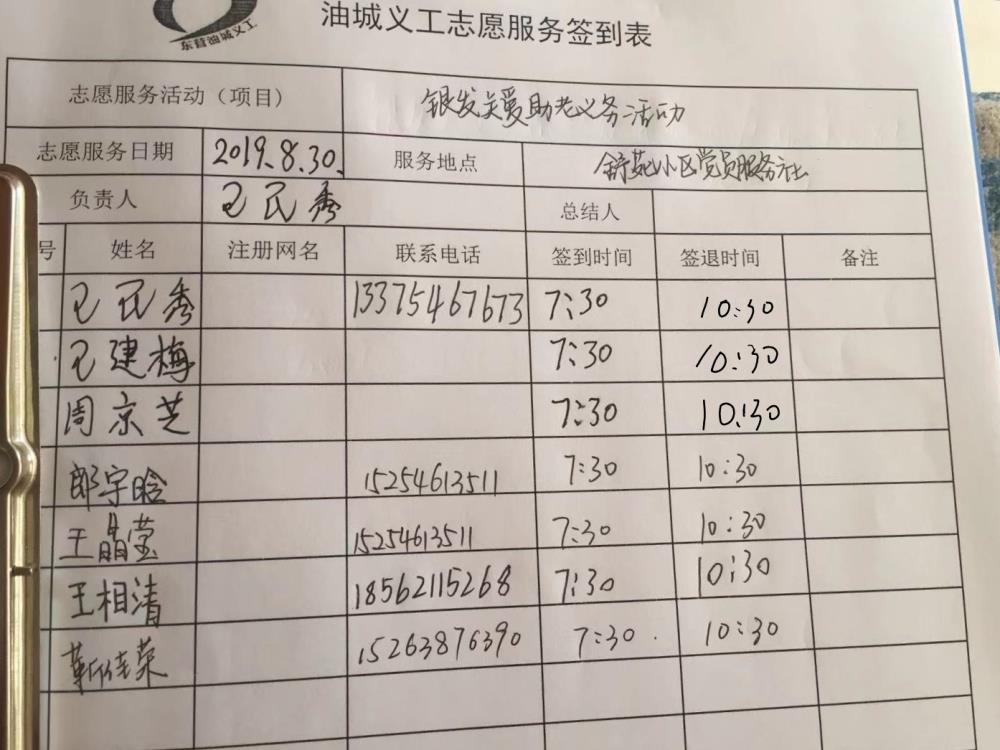 东营油城义工
油城义工志愿服务签到表
志愿服务活动（项目） 银发关爱助老义务活动
志愿服务日期 2019.8.30. 服务地点 舒苑小区党员服务社
负责人 王民秀 总结人
号 姓名 注册网名 联系电话 签到时间 签退时间 备注
王民秀 13375467673 7:30 10:30
王建梅 7:30 10:30
周京芝 7:30 10:30
郎宇晗 15254613511 7:30 10:30
王晶莹 15254613511 7:30 10:30
王相清 18562115268 7:30 10:30
靳佳荣 15263876390 7:30 10:30